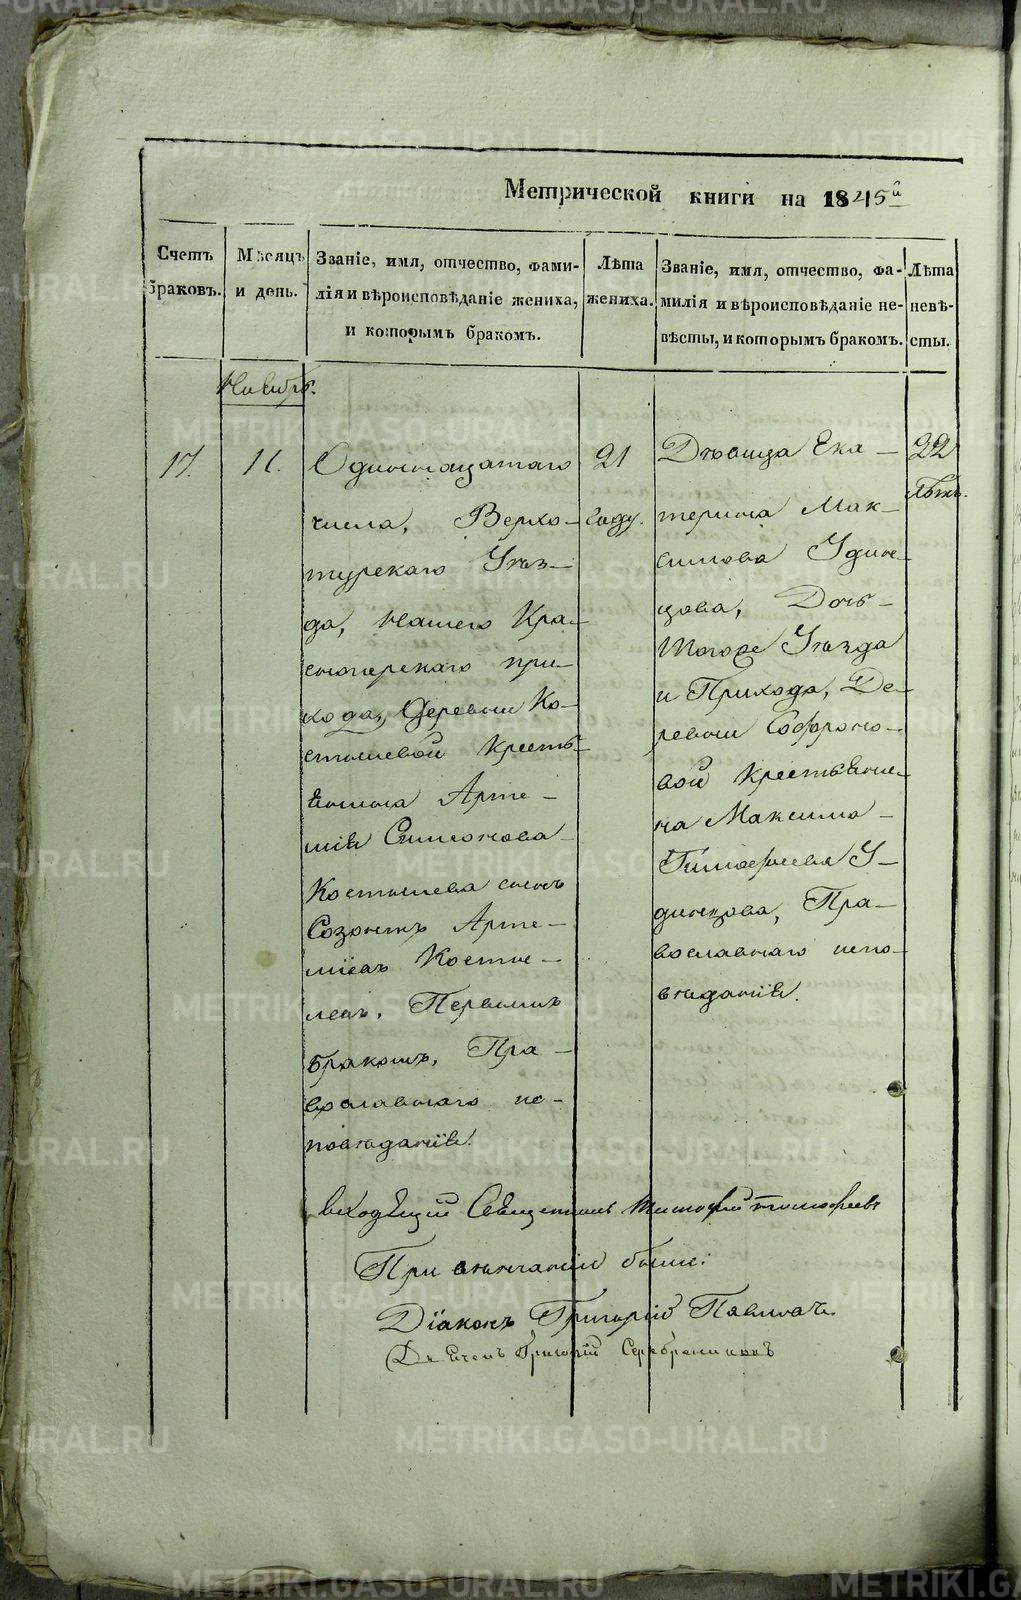 Метрической книги на 1845й
Счетъ браковъ.
Мѣсяцъ и день.
Званіе, имя, отчество, фами-
лія и вѣроисповѣданіе жениха,
и которымъ бракомъ.
Лѣта жениха.
Званіе, имя, отчество, фа-
милія и вѣроисповѣданіе не-
вѣсты, и которымъ бракомъ.
Лѣта невѣ-
сты.
Ноябрь.
17.
11.
Одиннацатаго
числа, Верхо-
турскаго Уѣз-
да, Нашего Кра-
сногорскаго при-
хода, Деревни Ко-
стылевой Кресть
янина Арте-
мія Симонова
Костылева сынъ
Созонтъ Арте-
міевъ Косты-
левъ, Первымъ
бракомъ, Пра-
вославнаго ис-
повѣданія.
21
году.
Дѣвица Ека-
терина Мак-
симова Удин-
цова, Дочь
Тогоже Уѣзда
и Прихода, Де-
ревни Софроно-
вой Крестьяни-
на Максима
Тимофеева У-
динцова, Пра-
вославнаго испо-
вѣданія.
22
Лѣтъ.
Священникъ Тимофей
При вѣнчаніи были:
Діаконъ Григорій
Дьячекъ Григорій Серебрениковъ
METRIKI.GASO-URAL.RU